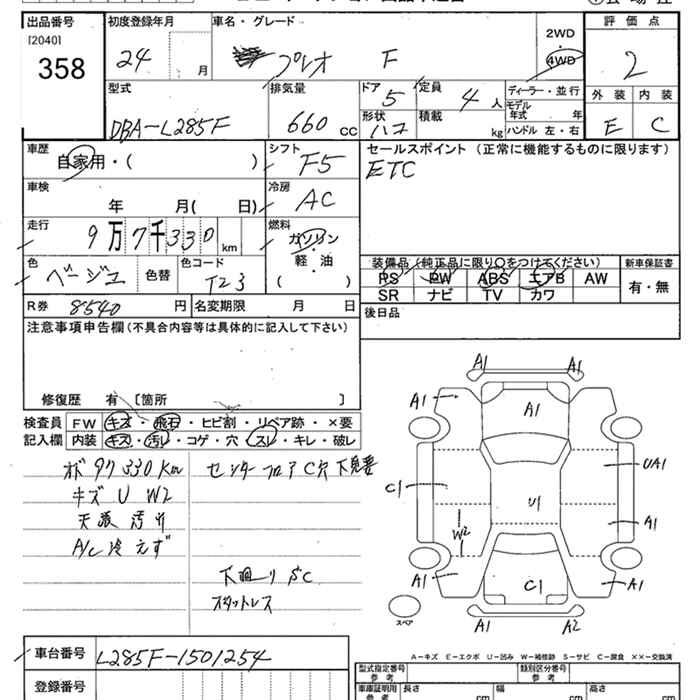 出品番号
[2040]
358
初度登録年月
24 月
車名・グレード
プレオ F
2WD
4WD
評価点
2
型式
DBA-L285F
排気量
660 cc
ドア
5
定員
4 人
形状
ハコ
積載
kg
ディーラー・並行
モデル
年式 年
ハンドル 左・右
外装
E
内装
C
車歴
自家用・( )
シフト
F5
セールスポイント(正常に機能するものに限ります)
ETC
車検
年 月( 日)
冷房
AC
走行
9万7千330 km
燃料
ガソリン
軽・油
( )
色
ベージュ
色替
色コード
T23
装備品(純正品に限り○をつけてください)
PS PW ABS エアB AW
SR ナビ TV カワ
新車保証書
有・無
R券 8540 円
名変期限 月 日
後日品
注意事項申告欄(不具合内容等は具体的に記入して下さい)
修復歴 有 [箇所 ]
検査員
記入欄
FW キズ・飛石・ヒビ割・リペア跡・×要
内装 キズ・汚レ・コゲ・穴・スレ・キレ・破レ
ボ 97330km
キズ U W2
A/C 冷えず
センターフロア C穴 下見要
下廻り SC
スタットレス
A1 A1
A1 A1 A1
UA1
C1 U1
A1
W2
A1 C1 A1
A1 A2
スペア
A-キズ E-エクボ U-凹み W-補修跡 S-サビ C-腐食 ××-交換済
車台番号 L285F-1501254
登録番号
型式指定番号
参考
類別区分番号
参考
車庫証明用
参考
長さ cm
幅 cm
高さ cm